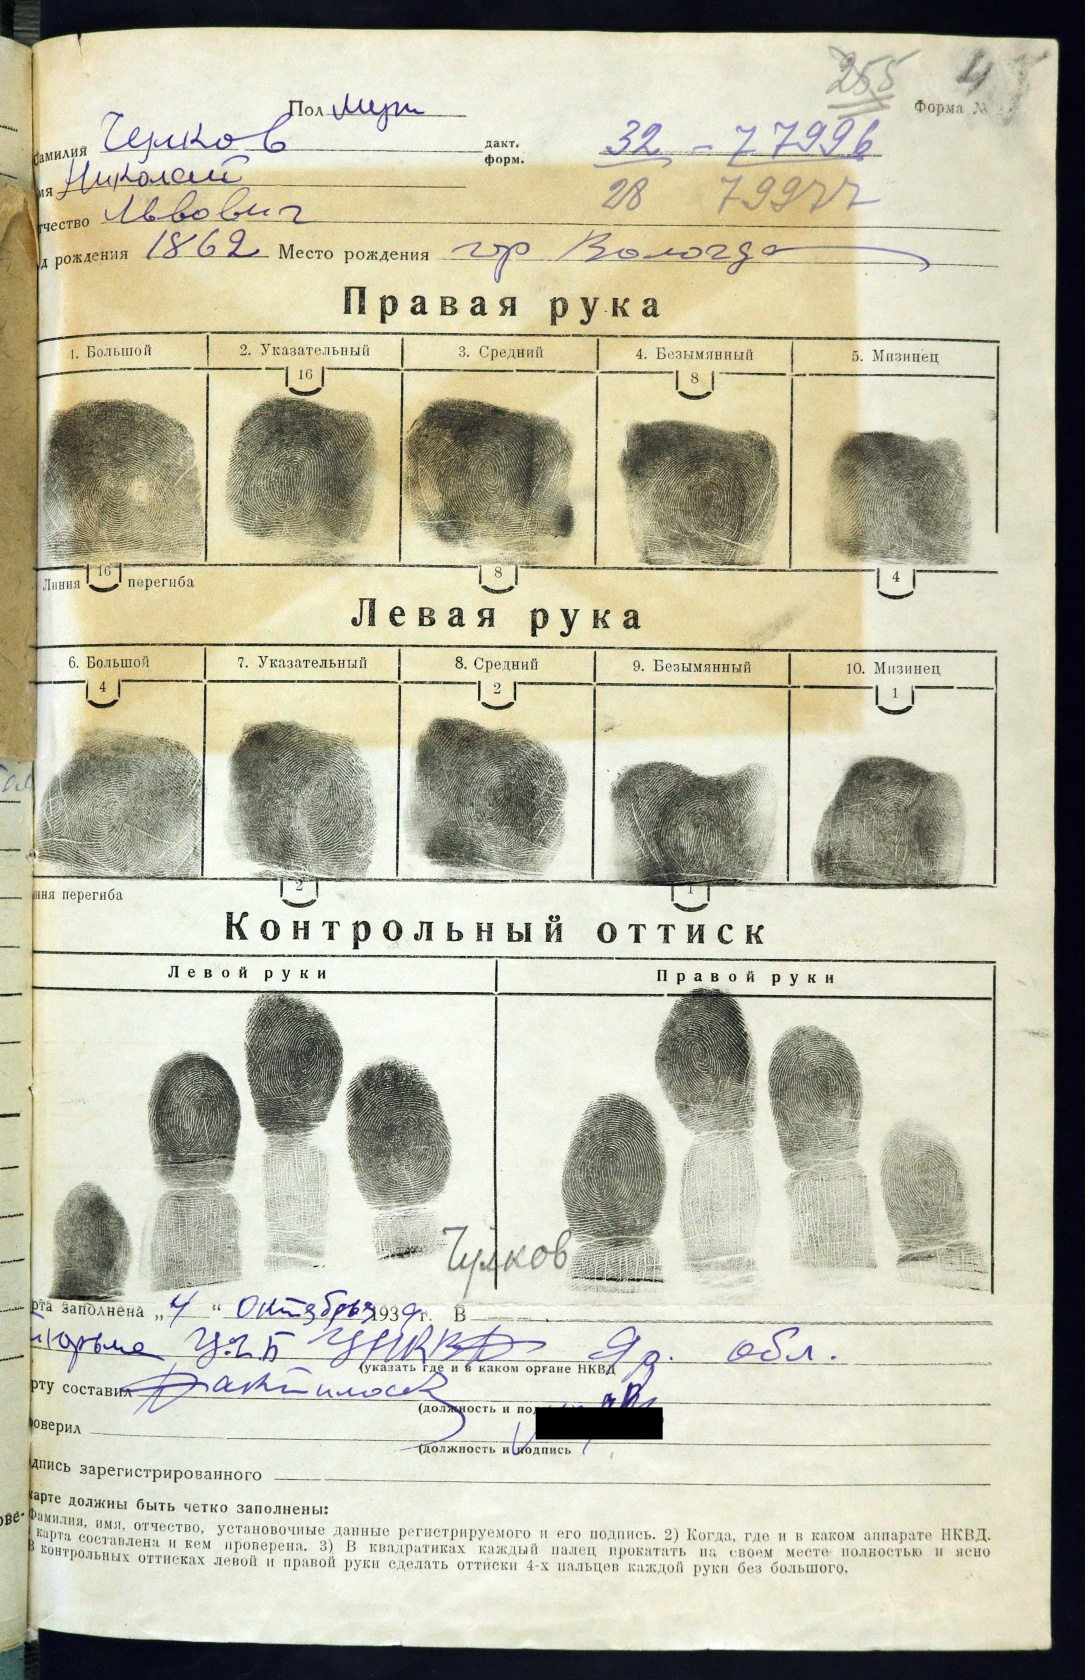 255 4
Пол муж Форма №
Фамилия Чулков дакт. форм. 32 - 77996
мя Николай 28 79977
тчество Львович
д рождения 1862 Место рождения гор Вологда
Правая рука
1. Большой 2. Указательный 3. Средний 4. Безымянный 5. Мизинец
16 8
Линия 16 перегиба 8 4
Левая рука
6. Большой 7. Указательный 8. Средний 9. Безымянный 10. Мизинец
4 2 1
ния перегиба 2 1
Контрольный оттиск
Левой руки Правой руки
Чулков
рта заполнена „4“ октября 1939 г. В
тюрьма УГБ УНКВД Яр. обл.
(указать где и в каком органе НКВД
рту составил Дактилоск
(должность и под
оверил
(должность и подпись
дпись зарегистрированного
карте должны быть четко заполнены:
Фамилия, имя, отчество, установочные данные регистрируемого и его подпись. 2) Когда, где и в каком аппарате НКВД.
карта составлена и кем проверена. 3) В квадратиках каждый палец прокатать на своем месте полностью и ясно
В контрольных оттисках левой и правой руки сделать оттиски 4-х пальцев каждой руки без большого.